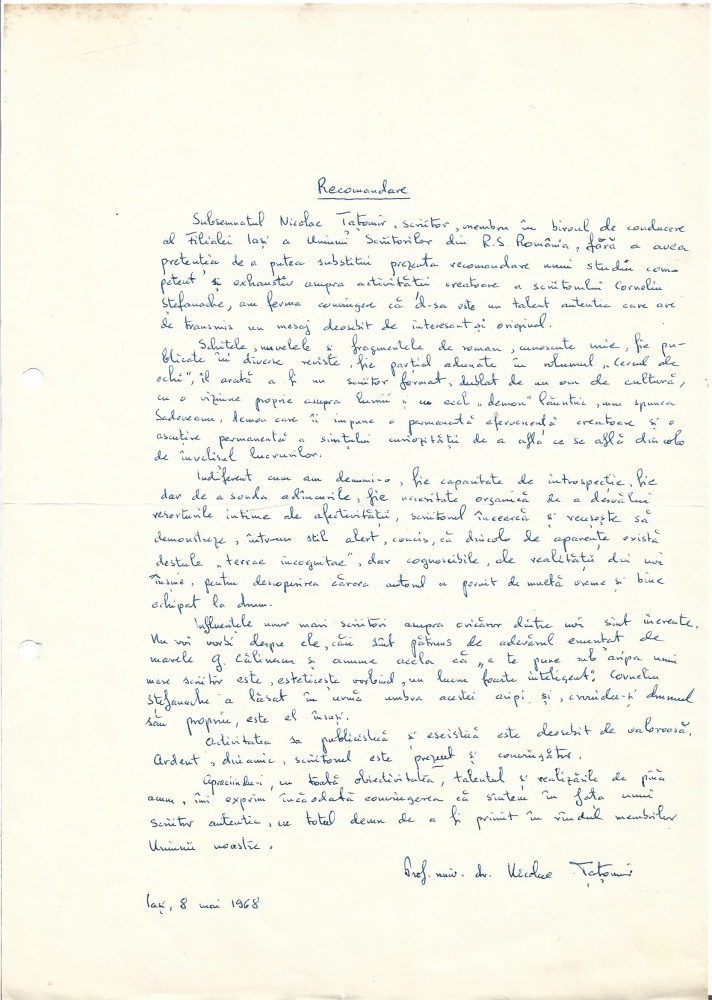 Recomandare
Subsemnatul Nicolae Țațomir, scriitor, membru în biroul de conducere
al Filialei Iași a Uniunii Scriitorilor din R.S. România, fără a avea
pretenția de a putea substitui prezenta recomandare unui studiu com-
petent și exhaustiv asupra activității creatoare a scriitorului Corneliu
Ștefanache, am ferma convingere că d-sa este un talent autentic care are
de transmis un mesaj deosebit de interesant și original.
Schițele, nuvelele și fragmentele de roman, cunoscute mie, fie pu-
blicate în diverse reviste, fie parțial adunate în volumul „Cercul de
ochi", îl arată a fi un scriitor format, dublat de un om de cultură,
cu o viziune proprie asupra lumii și cu acel „demon" lăuntric, cum spunea
Sadoveanu, demon care îi impune o permanentă efervescență creatoare și o
ascuțire permanentă a simțului curiozității de a afla ce se află dincolo
de învelișul lucrurilor.
Indiferent cum am denumi-o, fie capacitate de introspecție, fie
dar de a sonda adîncurile, fie necesitate organică de a dezvălui
resorturile intime ale afectivității, scriitorul încearcă și reușește să
demonstreze, într-un stil alert, concis, că dincolo de aparențe există
destule „terrae incognitae", dar cognoscibile, ale realității din noi
înșine, pentru descoperirea cărora autorul a pornit de multă vreme și bine
echipat la drum.
Influențele unor mari scriitori asupra oricăror dintre noi sînt increate.
Nu voi vorbi despre ele, căci sînt pătruns de adevărul enunțat de
marele G. Călinescu și anume acela că „a te pune sub aripa unui
mare scriitor este, esteticește vorbind, un lucru foarte inteligent". Corneliu
Ștefanache a lăsat în urmă umbra acestei aripi și, croindu-și drumul
său propriu, este el însuși.
Activitatea sa publicistică și eseistică este deosebit de valoroasă.
Ardent, dinamic, scriitorul este prezent și convingător.
Apreciindu-i, cu toată obiectivitatea, talentul și realizările de pînă
acum, îmi exprim încăodată convingerea că sîntem în fața unui
scriitor autentic, cu totul demn de a fi primit în rîndul membrilor
Uniunii noastre.
Prof. univ. dr. Nicolae Țațomir
Iași, 8 mai 1968